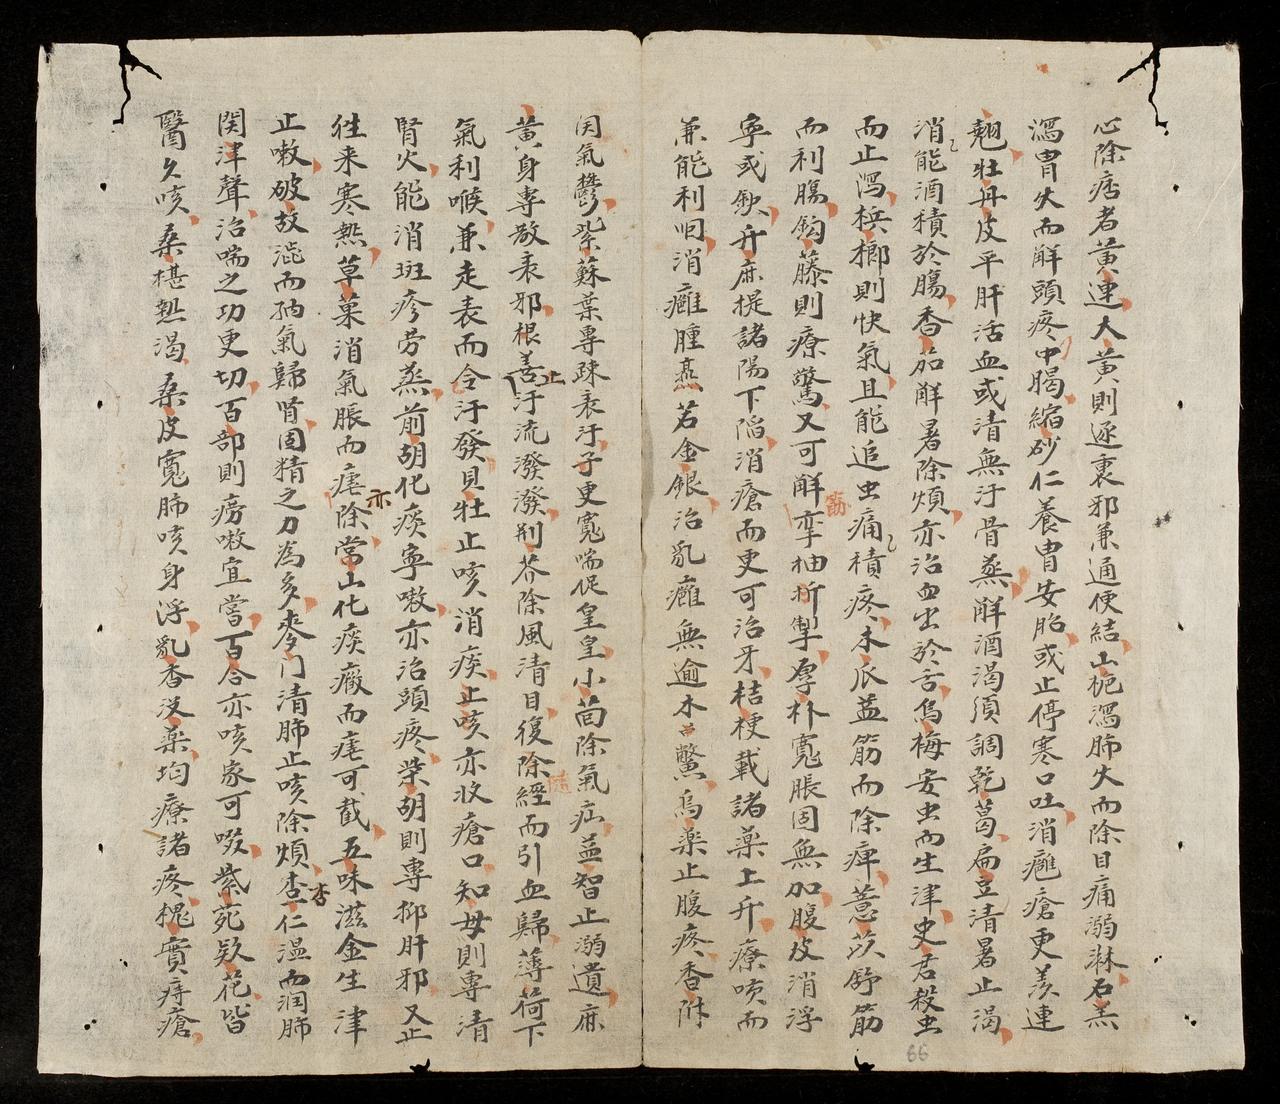 心除痞者黄連大黄則逐裏邪兼通便結山梔瀉肺火而除目痛溺淋石羔
瀉胃火而解頭疼中腸縮砂仁養胃安胎或止停寒口吐消癰瘡更羡連
翹牡丹皮平肝活血或清無汗骨蒸解酒渴須調乾葛扁豆清暑止渴
消能酒積於腸香茹解暑除煩亦治血出於舌烏梅安虫而生津史君殺虫
而止瀉梹榔則快氣且能追虫痛積疼木瓜益筋而除痺薏苡舒筋
而利腸鈎藤則療驚又可解筋孿柚折掣厚朴寬脹固無加腹皮消浮
寧或歛升麻提諸陽下陷消瘡而更可治牙桔梗載諸薬上升療咳而
兼能利咽消癰腫燕若金銀治乱癰無逾木鱉烏薬止腹疼香附
開氣鬱紫蘇葉專疎表汗子更寬喘促皇皇小茴除氣疝益智止溺遺麻
黄身專散表邪根善止汗流潑潑荆芥除風清目復除經而引血歸薄荷下
氣利喉兼走表而令汗發貝牡止咳消痰止咳亦收瘡口知母則專清
腎火能消斑疹劳蒸前胡化痰寧嗽亦治頭疼柴胡則專抑肝邪又止
徃来寒熱草菓消氣脹而瘧亦除常山化痰癥而瘧可截五味滋金生津
止嗽破故澁而納氣歸腎固精之力為多麥门清肺止咳除煩杏仁温而润肺
関津聲治喘之功更切百部則癆嗽宜當百合亦咳家可啜紫苑欵花皆
醫久咳桑椹熱渴桑皮寬肺咳身浮乱香没薬均療諸疼槐實痔瘡
66